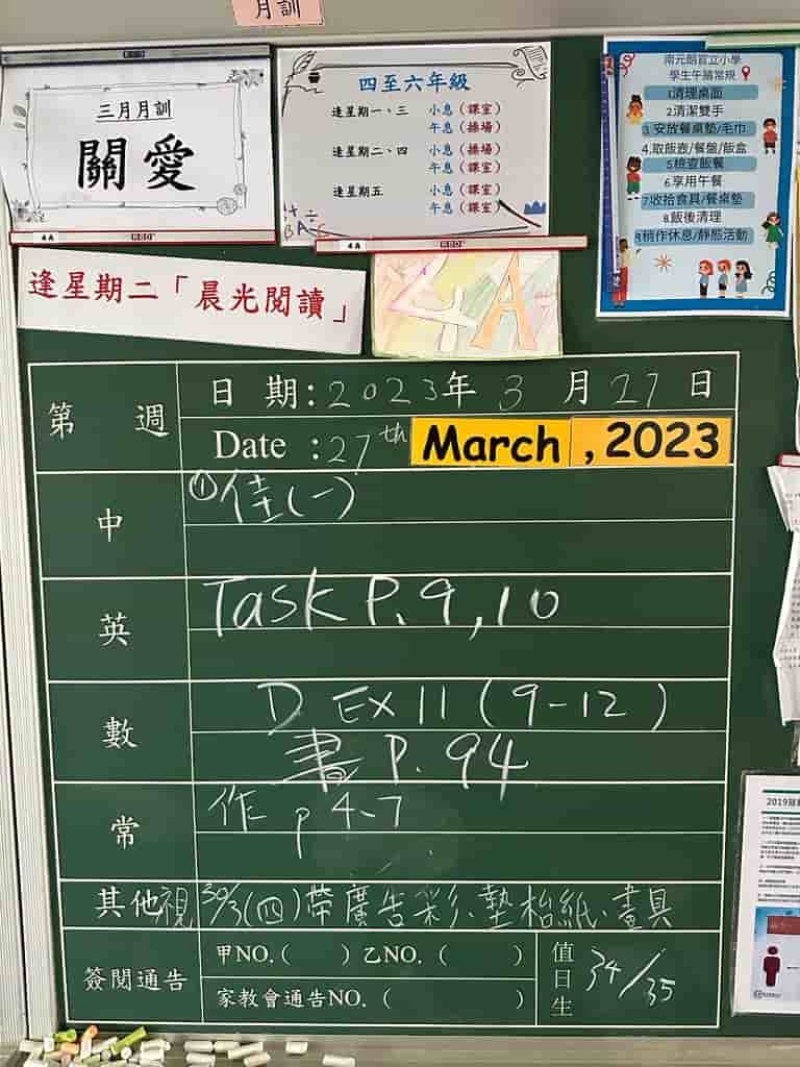 月訓
三月月訓
關愛
四至六年級
逢星期一、三 小息(課室)
午息(操場)
逢星期二、四 小息(操場)
午息(課室)
逢星期五 小息(課室)
午息(課室)
南元朗官立小學
學生午膳常規
1清理桌面
2清潔雙手
3.安放餐桌墊/毛巾
4.取飯壺/餐盤/飯盒
5檢查飯餐
6享用午餐
7收拾食具/餐桌墊
8飯後清理
9稍作休息/靜態活動
4A
4A
逢星期二「晨光閱讀」
4A
第 週
日 期:2023年 3 月 27 日
Date :27th March ,2023
中
①佳(一)
英
Task P.9,10
數
D Ex 11 (9-12)
書 P.94
常
作 p 4-7
其他
視 30/3(四)帶廣告彩、墊枱紙、畫具
簽閱通告
甲NO.( )乙NO.( )
家教會通告NO.( )
值日生
34/35
2019